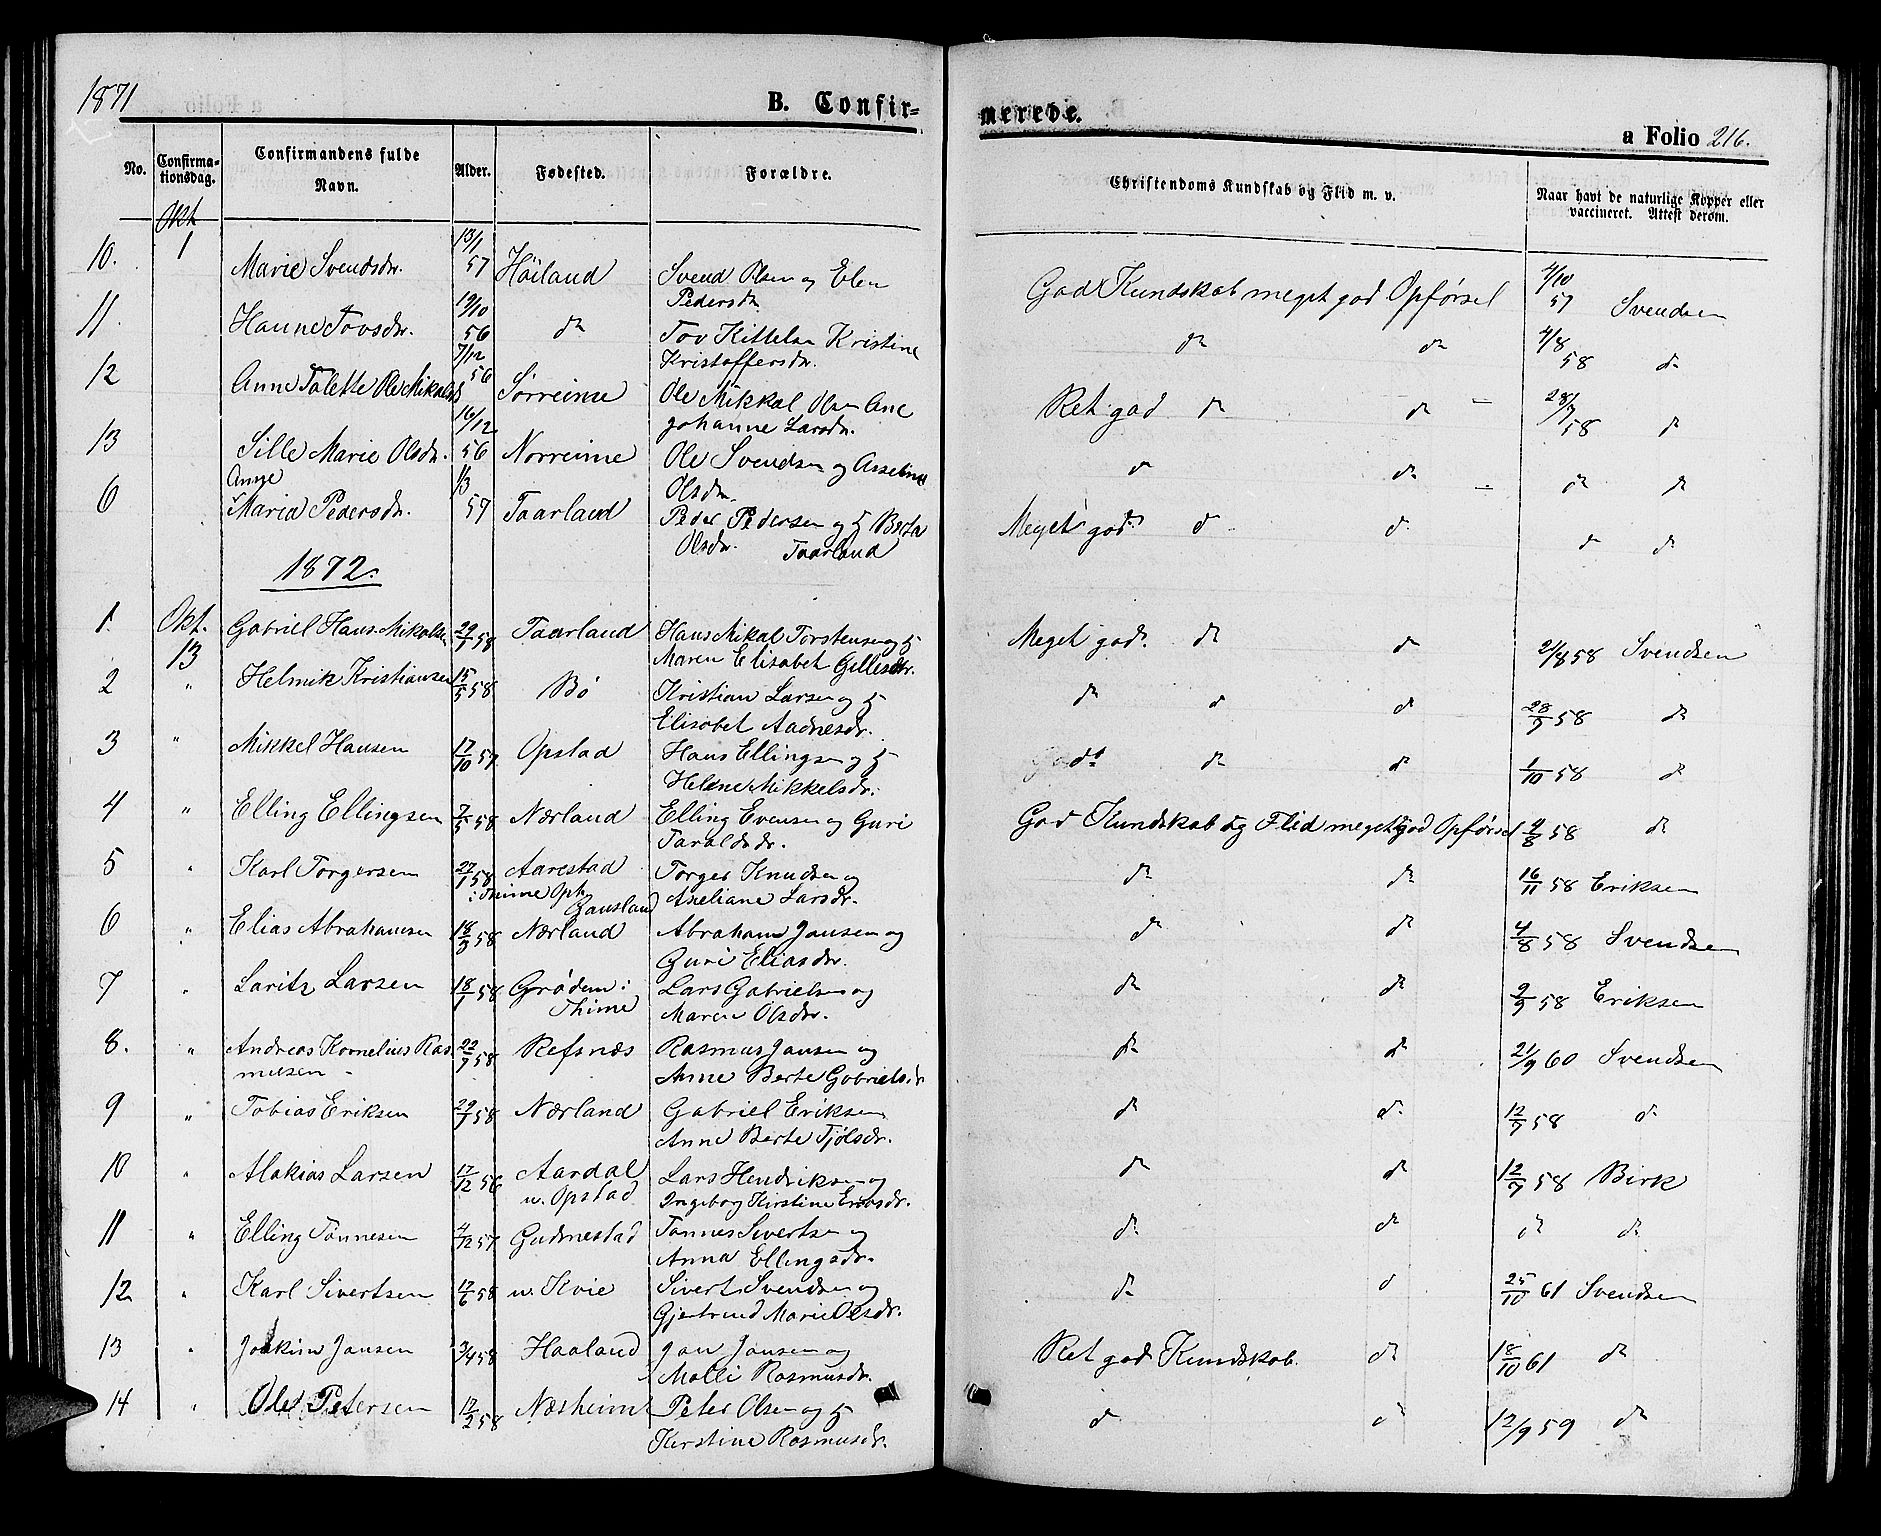 1871
B. Confir-
merede.
a Folio 216.
No. Confirma-tionsdag. Confirmandens fulde Navn. Alder. Fødested. Forældre. Christendoms Kundskab og Flid m. v. Naar havt de naturlige Kopper eller vaccineret. Attest derom.
Okt
10. 1 Marie Svendsdr. 13/1 57 Höiland Svend Olsen og Elen God Kundskab meget god Opførsel 4/10 57 Svendsen
Pedersdr.
11. Hanne Tovsdr. 19/10 56 do Tov Kittelsen Kristine do do 4/8 58 do
Kristoffersdr.
12 Anne Talette Ole Mikalsd 7/12 56 Sørreime Ole Mikkal Olsen Ane Ret god do do 28/7 58 do
Johanne Larsdr.
13 Sille Marie Olsdr. 16/12 56 Norreime Ole Svendsen og Asseline do do do do
Olsdr.
6 Anne Maria Pedersdr. 1/3 57 Taarland Peder Pedersen og H Berta Meget god do do do do
Olsdr. Taarland
1872.
1. Okt. 13 Gabriel Hans Mikalsen 29/7 58 Taarland Hans Mikal Torstensen og H Meget god do do 21/8 58 Svendsen
Maren Elisabet Gillesdr.
2 " Helmik Kristiansen 15/5 58 Bø Kristian Larsen og H do do do 28/7 58 do
Elisabet Aadnesdr.
3 " Mikkel Hansen 17/10 57 Opstad Hans Ellingsen og H God do do 1/10 58 do
Helene Mikkelsdr.
4 " Elling Ellingsen 7/5 58 Nærland Elling Evensen og Guri God Kundskab og Flid meget god Opførsel 4/8 58 do
Taraldsdr.
5 " Karl Torgersen 27/1 58 Aarestad Torger Knudsen og do do 16/11 58 Eriksen
i Thime Oph. Gausland Aseliane Larsdr.
6 " Elias Abrahamsen 18/3 58 Nærland Abraham Jansen og do do 4/8 58 Svendsen
Guri Eliasdr.
7 " Laritz Larsen 18/1 58 Grødem i Lars Gabrielsen og do do 2/9 58 Eriksen
Thime Maren Olsdr.
8. " Andreas Kornelius Ras 22/7 58 Refsnæs Rasmus Jansen og do do 21/9 60 Svendsen
musen Anne Berte Gabrielsdr
9 " Tobias Eriksen 29/7 58 Nærland Gabriel Eriksen do do 12/7 58 do
Anne Berte Tjølsdr.
10 " Malakias Larsen 17/12 56 Aardal Lars Hendriksen og do do 12/7 58 Birk
u. Opstad Ingeborg Kirstine Enoksdr.
11 " Elling Tønnesen 4/12 57 Gudmestad Tønnes Sivertsen og do do do do
Anna Ellingsdr.
12 " Karl Sivertsen 17/6 58 u. Kvie Sivert Svendsen og do do 25/10 61 Svendsen
Gjertrud Marie Olsdr.
13 " Joakim Jansen 3/4 58 Haaland Jan Jansen og Ret god Kundskab. do 18/10 61 do
Malli Rasmusdr.
14 " Ole Petersen 12/2 58 Næsheim Peter Olsen og H do do 12/9 59 do
Kirstine Rasmusdr.